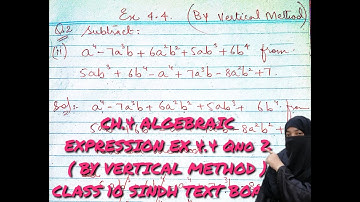 Ex 4.4. (By Vertical Method)
Q2 Subtract:
(ii) a⁴-7a³b+6a²b²+5ab³+6b⁴ from
5ab³+6b⁴-a⁴+7a³b-8a²b²+7.
Sol: a⁴-7a³b+6a²b²+5ab³+ 6b⁴ from
CH.4 ALGEBRAIC
EXPRESSION EX.4.4 Qno 2
( BY VERTICAL METHOD )
CLASS 10 SINDH TEXT BOA